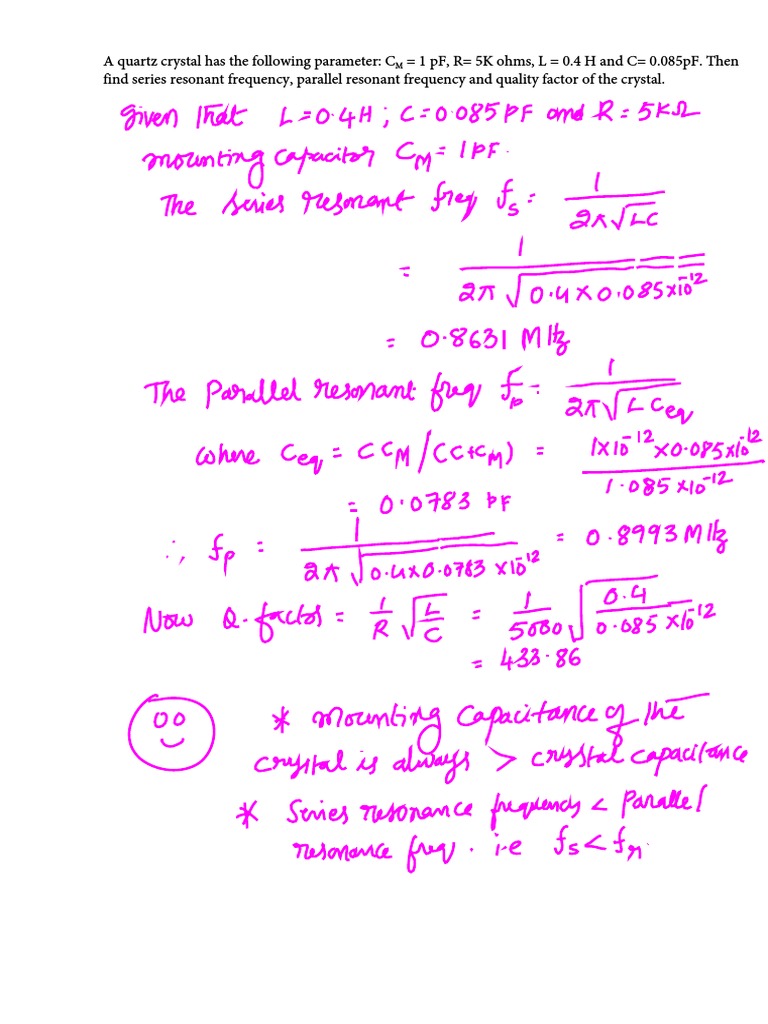 A quartz crystal has the following parameter: C_M = 1 pF, R= 5K ohms, L = 0.4 H and C= 0.085pF. Then
find series resonant frequency, parallel resonant frequency and quality factor of the crystal.
Given that L=0.4H ; C=0.085PF and R=5KΩ
mounting capacitor C_M = 1PF.
The series resonant freq f_s = 1 / 2π√LC
= 1 / 2π√0.4×0.085×10^-12
= 0.8631 MHz
The Parallel resonant freq f_p = 1 / 2π√L Ceq
where Ceq = C C_M / (C+C_M) = 1×10^-12 × 0.085×10^-12 / 1.085×10^-12
= 0.0783 PF
∴ f_p = 1 / 2π√0.4×0.0783×10^-12 = 0.8993 MHz
Now Q-factor = 1/R √L/C = 1/5000 √0.4 / 0.085×10^-12
= 433.86
* Mounting capacitance of the
crystal is always > crystal capacitance
* Series resonance frequency < Parallel
resonance freq. i.e f_s < f_r.